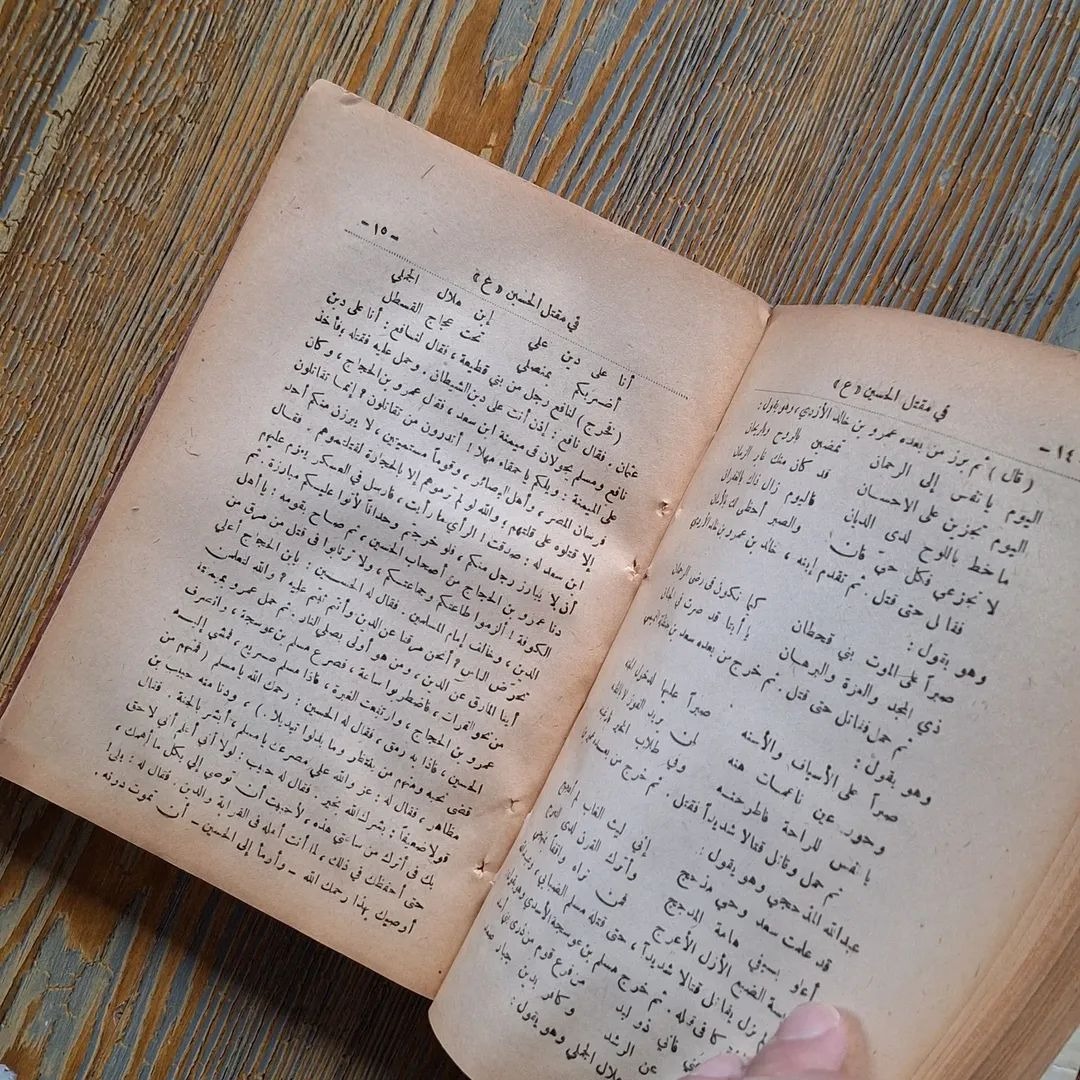 في مقتل الحسين «ع»
- ١٤
( قال ) ثم برز من بعده عمرو بن خالد الأزدي ، وهو يقول :
اليوم يا نفس إلى الرحمان تمضين بالروح وبالريحان
اليوم تجزين على الاحسان قد كان منك غابر الزمان
ما خط باللوح لدى الديان فاليوم زال ذاك بالغفران
لا تجزعي فكل حي فان والصبر أحظى لك بالأمان
فقاتل حتى قتل . ثم تقدم إبنه ، خالد بن عمرو بن خالد الأزدي
وهو يقول :
صبراً على الموت بني قحطان كيما نكون في رضى الرحمان
ذي المجد والعزة والبرهان يا أبتا قد صرت في الجنان
ثم حمل فقاتل حتى قتل . ثم خرج من بعده سعد بن حنظلة التميمي
وهو يقول :
صبراً على الأسياف والأسنه صبراً عليها لدخول الجنه
وحور عين ناعمات هنه لمن يريد الفوز لا بالظنه
يا نفس للراحة فاطرحنه وفي طلاب الخير فارغبنه
ثم حمل وقاتل قتالا شديداً فقتل . ثم خرج من بعده عمير بن
عبدالله المذحجي وهو يقول :
قد علمت سعد وحي مذحج إني ليث الغاب لم أهجهج
أعلو بسيفي هامة المدجج وأترك القرن لدى التعرج
فريسة الضبع الأزل الأعرج فمن تراه واقفاً بمنهجي
لم يزل يقاتل قتالا شديداً ، حتى قتله مسلم الضبابي ، وعبدالله
ثم خرج مسلم بن عوسجة الأسدي وهو يقول
فاني ذو لبد من فرع قوم من ذرى بني أسد
عن الرشد وكافر بدين جبار صمد
هلال الجملي وهو يقول :
في مقتل الحسين «ع»
- ١٥ -
أنا على دين علي إبن هلال الجملي
أضربكم بمنصلي تحت عجاج القسطل
( فخرج ) لنافع رجل من بني قطيعة ، فقال لنافع : أنا على دين
عثمان . فقال نافع : إذن أنت على دين الشيطان . وحمل عليه فقتله ، فأخذ
نافع ومسلم يجولان في ميمنة ابن سعد ، فقال عمرو بن الحجاج ، وكان
على الميمنة : ويلكم يا حمقاء مهلا ! أتدرون من تقاتلون ؟ إنما تقاتلون
فرسان المصر ، وأهل البصائر ، وقوماً مستميتين ، لا يبرزن منكم أحد
إلا قتلوه على قلتهم ، والله لو لم ترموهم إلا بالحجارة لقتلتموهم . فقال
ابن سعد له : صدقت ! الرأي ما رأيت ، فارسل في العسكر يعزم عليهم
أن لا يبارز رجل منكم ، فلو خرجتم وحداناً لأتوا عليكم مبارزة . ثم
دنا عمرو بن الحجاج من أصحاب الحسين ، ثم صاح بقومه : يا أهل
الكوفة ! ألزموا طاعتكم وجماعتكم ، ولا ترتابوا في قتل من مرق من
الدين ، وخالف إمام المسلمين . فقال له الحسين : يابن الحجاج أعلي
تحرض الناس ؟ أنحن مرقنا عن الدين وأنتم ثبتم عليه ؟ والله لتعلمن
أينا المارق عن الدين ، ومن هو أولى بصلي النار . ثم حمل عمرو بميمنته
من نحو الفرات ، فاضطربوا ساعة ، فصرع مسلم بن عوسجة ، وانصرف
عمرو بن الحجاج ، وارتفعت الغبرة ، فاذا مسلم صريع ، فمشى إليه
الحسين ، فاذا به رمق ، فقال له الحسين : رحمك الله يا مسلم ( فمنهم من
قضى نحبه ومنهم من ينتظر وما بدلوا تبديلا . ) ، ودنا منه حبيب بن
مظاهر ، فقال له : عز والله علي مصرعك يا مسلم ، أبشر بالجنة . فقال
قولا ضعيفاً : بشرك الله بخير . فقال له حبيب : لولا أني أعلم أني لاحق
بك في أثرك من ساعتي هذه ، لأحببت أن توصي إلي بكل ما أهمك ،
حتى أحفظك في ذلك ، لما أنت أهله في القرابة والدين . فقال له : بلى !
أوصيك بهذا رحمك الله - وأومأ إلى الحسين - أن تموت دونه .